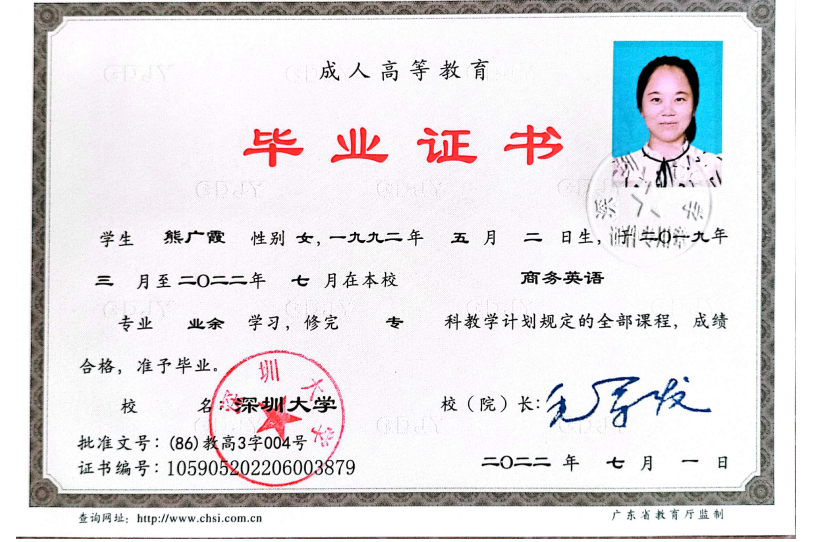 成人高等教育
毕业证书
学生 熊广霞 性别 女，一九九二年 五 月 二 日生，于二〇一九年
三 月至 二〇二二年 七 月在本校 商务英语
专业 业余 学习，修完 专 科教学计划规定的全部课程，成绩
合格，准予毕业。
校 名：深圳大学 校（院）长：
批准文号：(86)教高3字004号
证书编号：105905202206003879 二〇二二 年 七 月 一 日
查询网址：http://www.chsi.com.cn 广东省教育厅监制